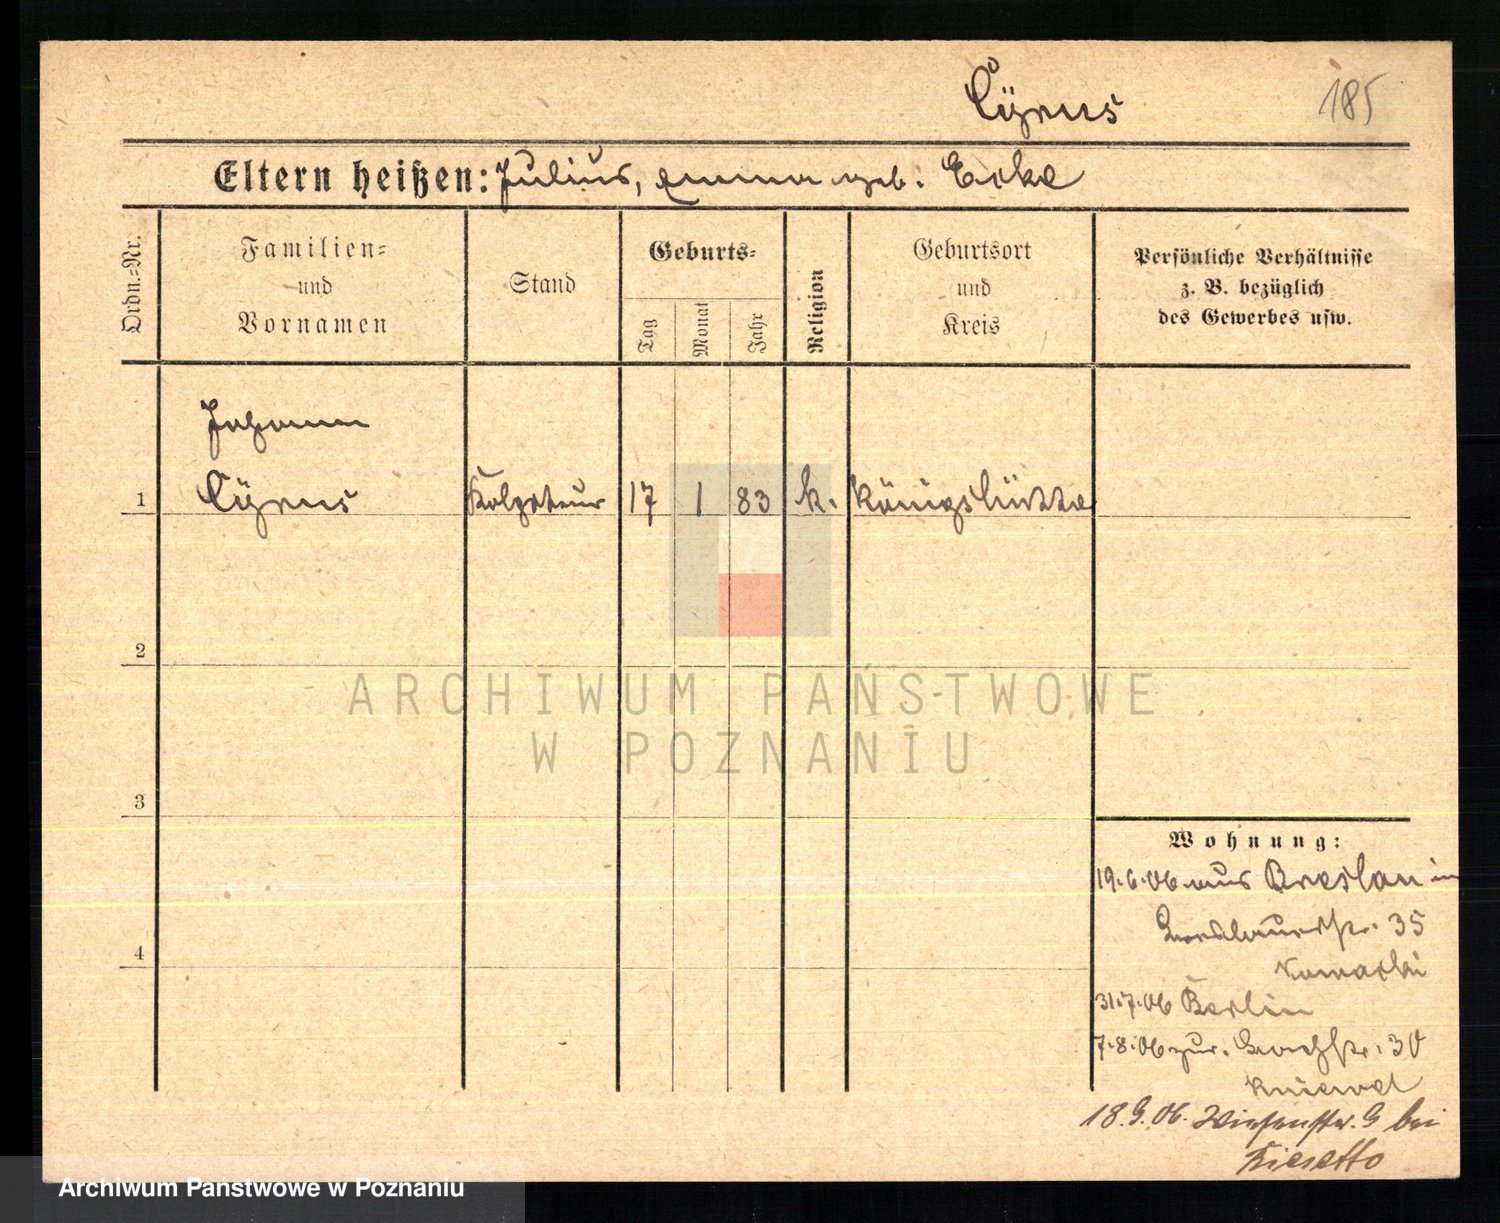 Cyrus
185
Eltern heißen: Julius, Emma geb. Ecke
Ordn.=Nr.
Familien=
und
Vornamen
Stand
Geburts=
Tag
Monat
Jahr
Religion
Geburtsort
und
Kreis
Persönliche Verhältnisse
z. B. bezüglich
des Gewerbes usw.
Johann
1 Cyrus Kolporteur 17 1 83 k. Königshütte
2
ARCHIWUM PAŃSTWOWE
W POZNANIU
3
Wohnung:
19.6.06 aus Breslau in
Breslauerstr. 35
4
31.7.06 Berlin
7.8.06 zur. 30
18.9.06. Wiesenstr. 9 bei
Archiwum Państwowe w Poznaniu